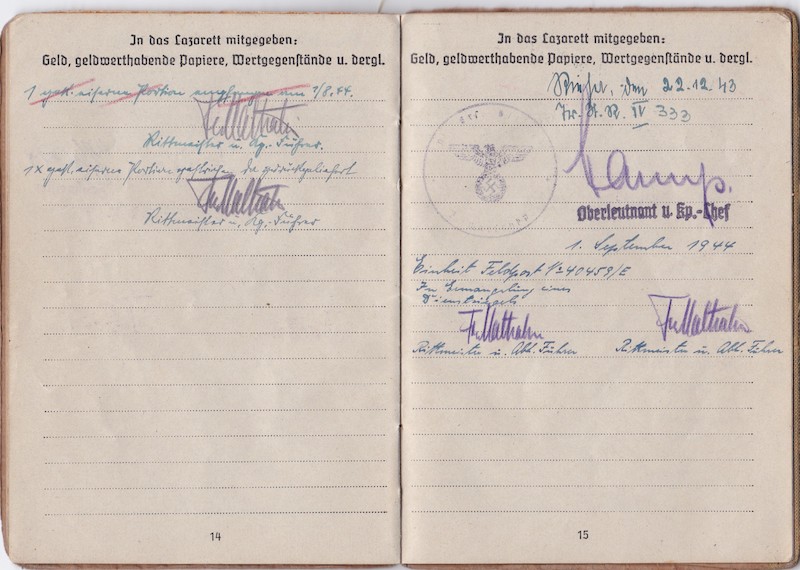 In das Lazarett mitgegeben:
Geld, geldwerthabende Papiere, Wertgegenstände u. dergl.
1 gek. eiserne Portion empfangen am 1/8.44.
Rittmeister u. Kp.-Führer.
1 x gek. eiserne Portion gestrichen da zurückgeliefert
Rittmeister u. Kp.-Führer
14
In das Lazarett mitgegeben:
Geld, geldwerthabende Papiere, Wertgegenstände u. dergl.
den 22.12.43
IV 333
Oberleutnant u. Kp.-Chef
1. September 1944
Einheit Feldpost No 40459/E
In Ermangelung eines
Dienstsiegels
Rittmeister u. Abt. Führer
Rittmeister u. Abt. Führer
15